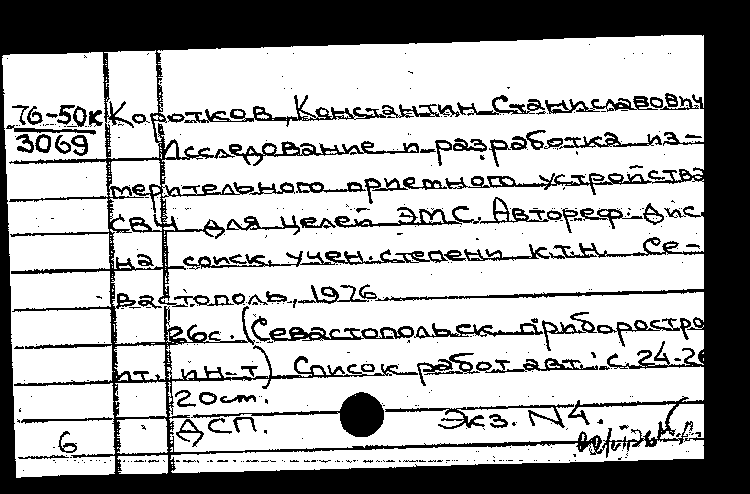 76-50к Коротков, Константин Станиславович
3069 Исследование и разработка из-
мерительного приемного устройства
СВЧ для целей ЭМС. Автореф. дис.
на соиск. учен. степени к.т.н. Се-
вастополь, 1976
26с. (Севастопольск. приборостро
ит. ин-т) Список работ авт.: с. 24-26
20см.
ДСП. Экз. N4.
6